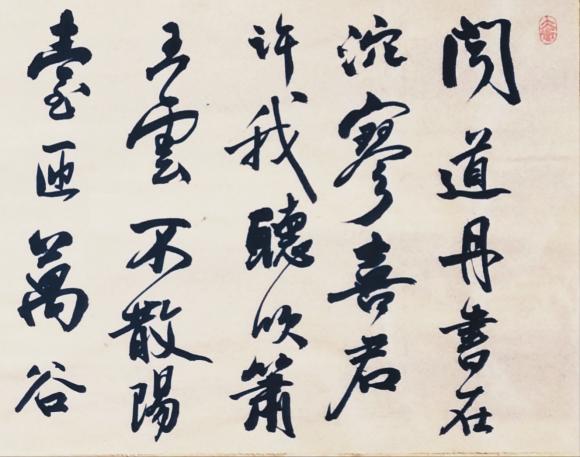 聞道丹書在
泬寥喜君
許我聽吹簫
五雲不散陽
臺匝萬谷